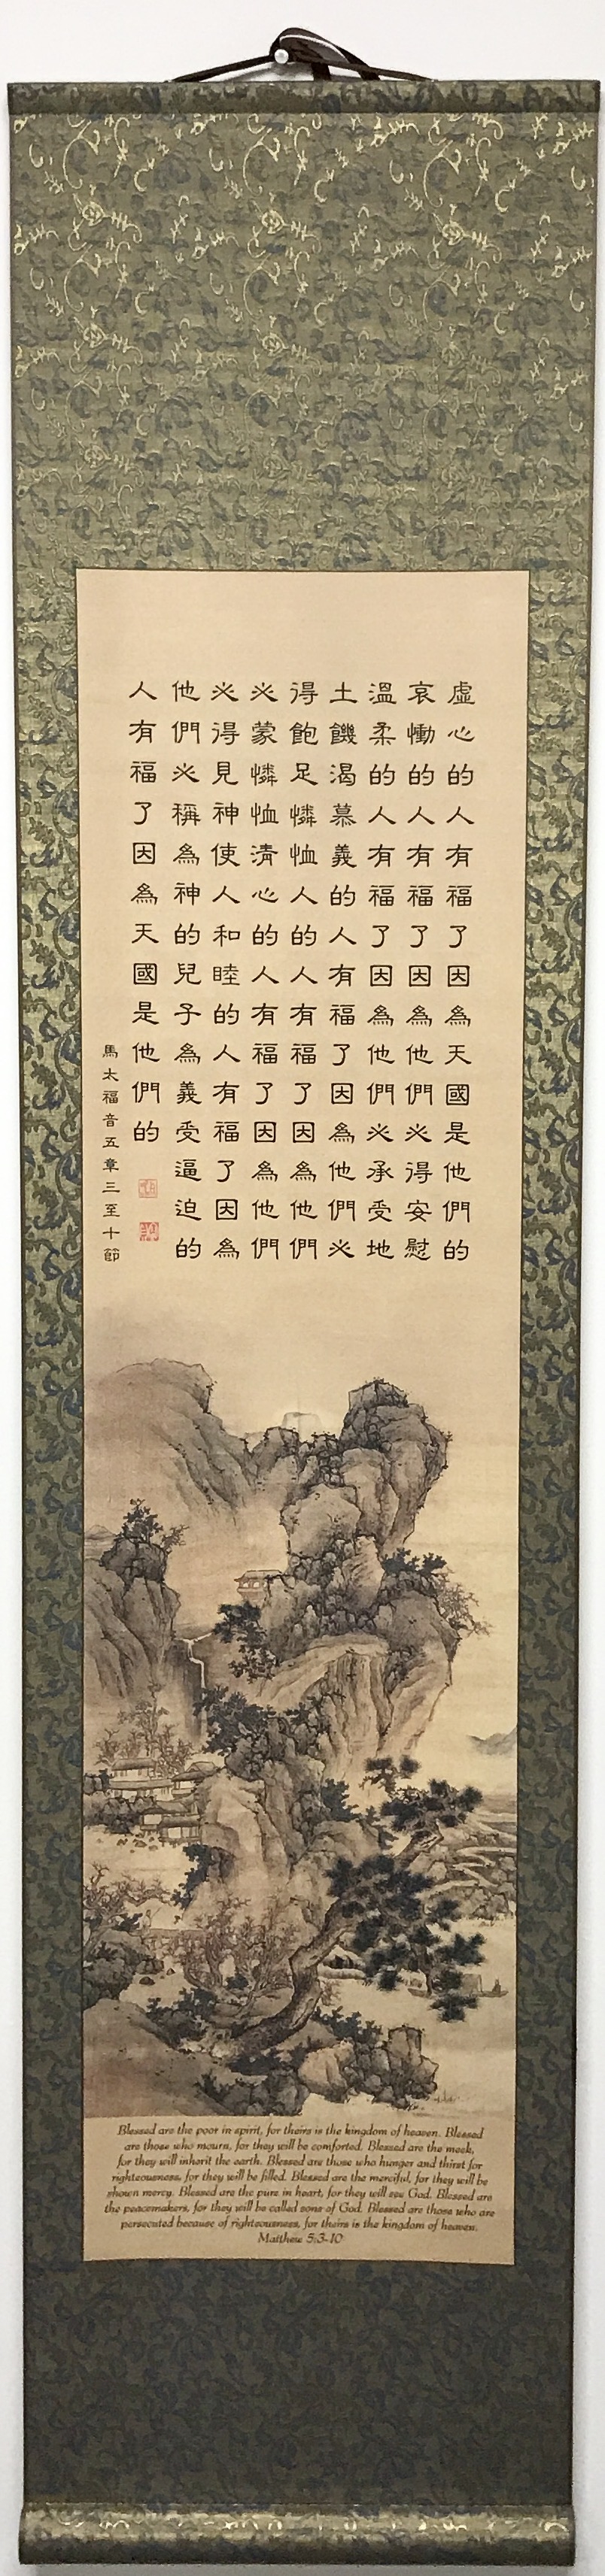 虛心的人有福了因為天國是他們的
哀慟的人有福了因為他們必得安慰
溫柔的人有福了因為他們必承受地
土饑渴慕義的人有福了因為他們必
得飽足憐恤人的人有福了因為他們
必蒙憐恤清心的人有福了因為他們
必得見神使人和睦的人有福了因為
他們必稱為神的兒子為義受逼迫的
人有福了因為天國是他們的
馬太福音五章三至十節
Blessed are the poor in spirit, for theirs is the kingdom of heaven. Blessed
are those who mourn, for they will be comforted. Blessed are the meek,
for they will inherit the earth. Blessed are those who hunger and thirst for
righteousness, for they will be filled. Blessed are the merciful, for they will be
shown mercy. Blessed are the pure in heart, for they will see God. Blessed are
the peacemakers, for they will be called sons of God. Blessed are those who are
persecuted because of righteousness, for theirs is the kingdom of heaven.
Matthew 5:3-10